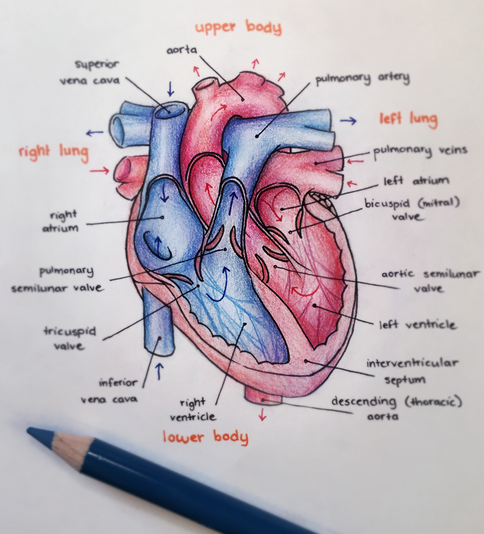 upper body
aorta
superior
vena cava
pulmonary artery
left lung
right lung
pulmonary veins
left atrium
bicuspid (mitral)
valve
right
atrium
pulmonary
semilunar valve
aortic semilunar
valve
tricuspid
valve
left ventricle
interventricular
septum
inferior
vena cava
right
ventricle
descending (thoracic)
aorta
lower body